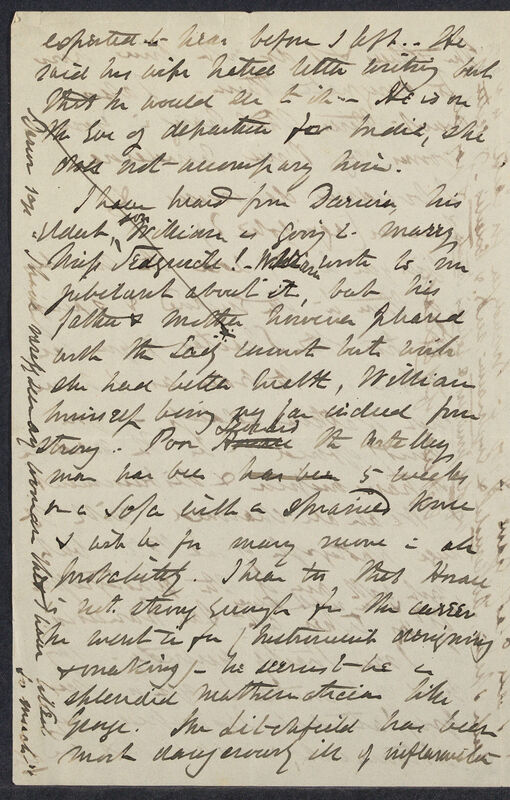 expected to hear before I left.. He
said his wife hated letter writing but
that he would see to it — He is on
the Eve of departure for India, she
does not accompany him.
I have heard from Darwin, his
eldest son William is going to marry
Miss Sedgwick! — William wrote to me
jubilant about it, but his
father & mother however pleased
with the Lady cannot but wish
she had better health, William
himself being very far indeed from
strong. Poor Horace Leonard the Artillery
man has been has been 5 weeks
on a Sofa with a sprained knee
& will be for many more in all
probability. I hear too that Horace
not strong enough for the career
he went in for (Instrument designing
& making) — he seems to be a
splendid mathematician like
George. Litchfield has been
most dangerously ill of inflammation
Darwin says "I have rarely seen any woman that I have liked
so much"